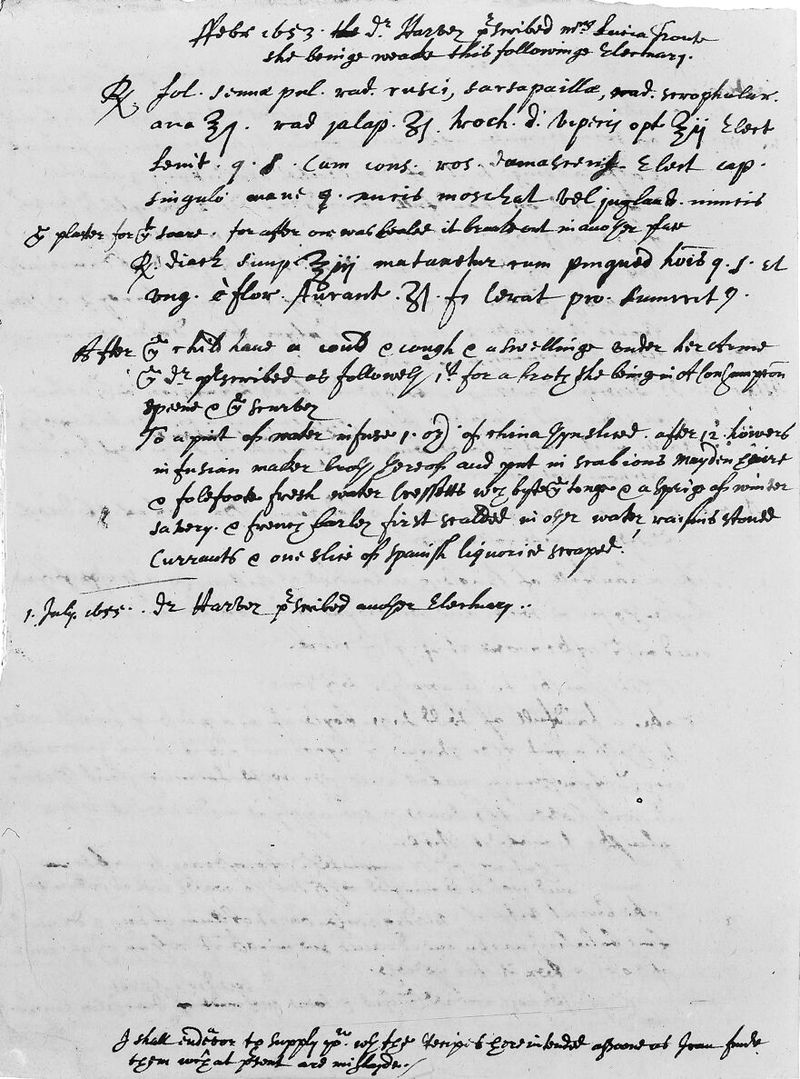 ffebr 1653. the dr. Harvey p̱scribed mrs Lucia Troute
she beinge weake this followinge Electuary.
℞. fol. sennæ pul. rad. rusci, sarsaparillæ, rad. scrophular.
ana ʒj. rad jalap. ʒſ. troch. d. viperis opt ʒij Elect
Lenit. q. s. Cum cons. ros. damascenis. Elect cap.
singulo mane q. nucis moschat vel jugland. minoris
ye plaster for ye soare. for after one was healed it brake out in another place
℞. diach simp. ʒiij malaxetur cum pinguedi hois q. s. et
ung. è flor. Aurant. ʒſ. f. Cerat pro.
After ye child have a could & cough & a swellinge under her Arme
ye dr p̱scribed as followeth 1st for a broth she being in A Consumption
spleene & ye scurvey
To a pint of water infuse 1. oz of china thyn sliced. after 12. howers
infusian make broth thereof and put in scabious Mayden haire
& folefoote fresh water Cressetts wth hyts tonge & a sprige of winter
savery. & french barley first scalded in other water raisins stoned
Currants & one slice of spanish liquorice scraped.
1. July. 1655. dr Harvey p̱scribed another Electuary..
I shall endevor to supply yu. wth the Recipes here intended assoone as I can finde
them wch at p̱sent are mislayde./